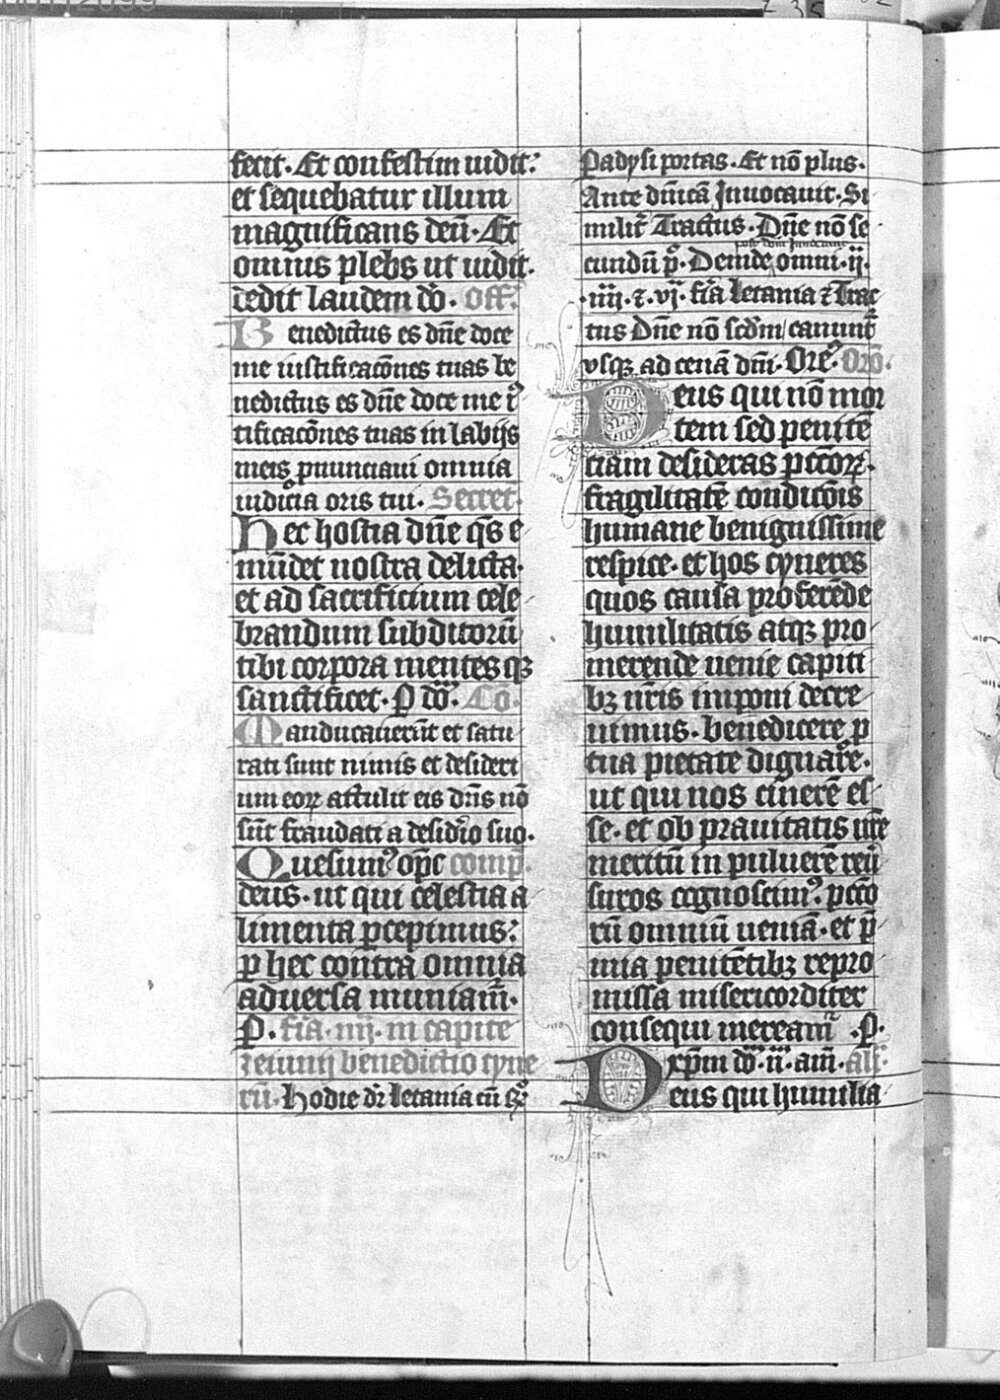 fecit. Et confestim uidit:
et sequebatur illum
magnificans deū. Et
omnis plebs ut uidit.
dedit laudem dō. Off.
Benedictus es dn̄e doce
me iustificacōnes tuas be
nedictus es dn̄e doce me iꝰ
tificacōnes tuas in labijs
meis ꝓnunciaui omnia
iudicia oris tui. Secret.
Hec hostia dn̄e qs̄ e
mūdet nostra delicta.
et ad sacrificium cele
brandum subditorū
tibi corpora mentes qꝫ
sanctificet. P dō. Cō.
Manducauerūt et satu
rati sunt nimis et desideri
um eoꝝ attulit eis dn̄s nō
sūt fraudati a desidʼio suo.
Quesumꝰ op̄c comp̄.
deus. ut qui celestia a
limenta ꝑcepimus:
ꝑ hec contra omnia
aduersa muniam̄.
P. fr̄ia. iiij. in capite
ieiunij benedictio cyne
rū. Hodie dr̄ letania cū
Padysi portas. Et nō plus.
Ante dn̄icā Inuocauit. Si
milit̄ Tractus. Dn̄e nō se
cundū p̄. Deinde omni. ij.
.iiij. ⁊. vj. fr̄ia letania ⁊ Trac
tus Dn̄e nō scd̄m canunt̄
vsqꝫ ad cenā dn̄i. Ore. Orō.
Deus qui nō mor
tem sed penitē
ciam desideras pcc̄oꝝ.
fragilitatē condicōis
humane benignissime
respice. et hos cyneres
quos causa proferēde
humilitatis atqꝫ pro
merende uenie capiti
bꝫ nr̄is imponi decre
uimus. benedicere ꝑ
tua pietate dignare.
ut qui nos cinerē es
se. et ob prauitatis nr̄e
meritū in puluerē reū
suros cognoscimꝰ. pcc̄o
rū omniū ueniā. et p̄
mia penitētibꝫ repro
missa misericorditer
consequi meream̄. P.
P xp̄m dō. n̄. am̄. alt.
Deus qui humilia